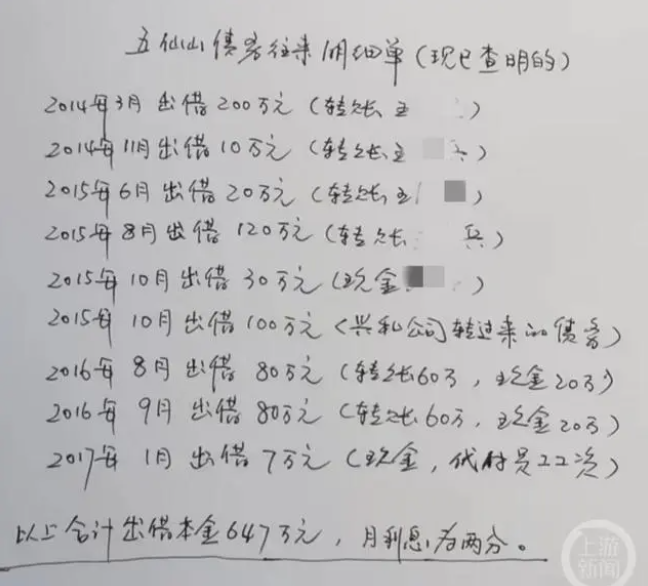 五仙山债务往来明细单(现已查明的)
2014年3月出借200万元(转账王)
2014年11月出借10万元(转账王)
2015年6月出借20万元(转账王)
2015年8月出借120万元(转账兵)
2015年10月出借30万元(现金)
2015年10月出借100万元(兴和公司转过来的债务)
2016年8月出借80万元(转账60万,现金20万)
2016年9月出借80万元(转账60万,现金20万)
2017年1月出借7万元(现金,代付员工工资)
以上合计出借本金647万元,月利息为两分。
上游新闻